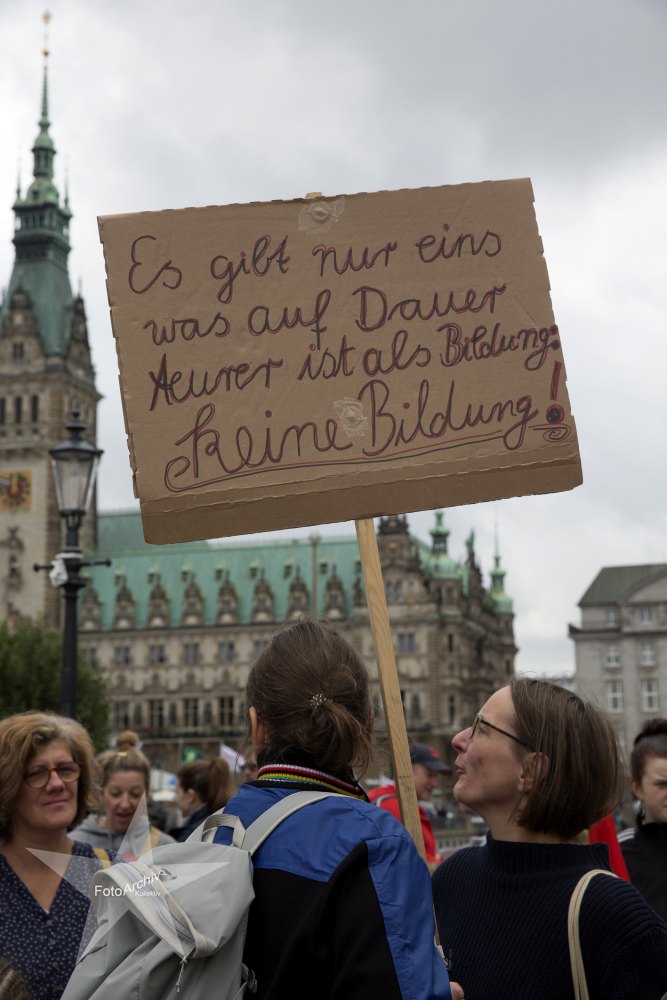 Es gibt nur eins
was auf Dauer
teurer ist als Bildung:
keine Bildung!
FotoArchiv
Kollektiv